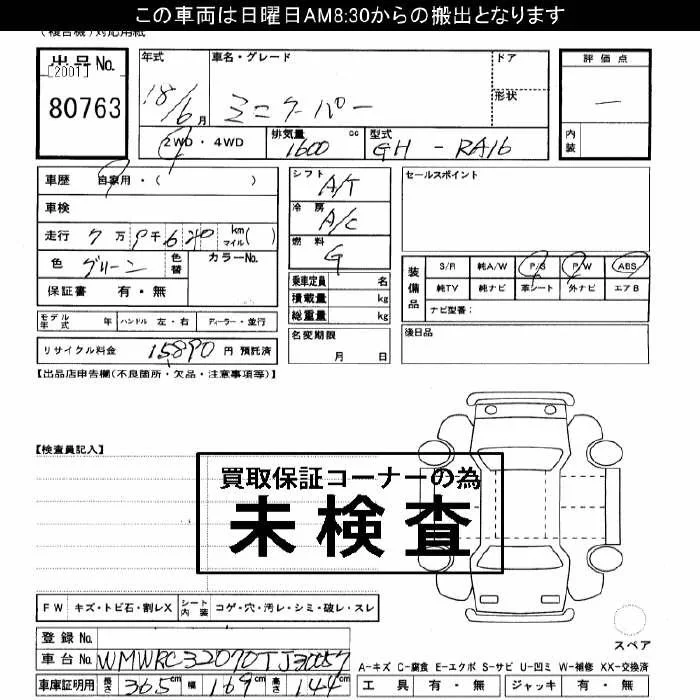 この車両は日曜日AM8:30からの搬出となります
(複合機)対応用紙
出品No.
[2001]
80763
年式
18/6月
車名・グレード
ミニクーパー
ドア
形状
評価点
—
内装
2WD・4WD
排気量 1600 cc
型式 GH - RA16
車歴 自家用・( )
車検
走行 7万9千620 km マイル( )
色 グリーン 色替 カラーNo.
保証書 有・無
シフト A/T
冷房 A/C
燃料 G
乗車定員 名
積載量 kg
総重量 kg
セールスポイント
装備品
S/R 純A/W P/S P/W ABS
純TV 純ナビ 革シート 外ナビ エアB
ナビ型番:
モデル年式 年 ハンドル 左・右 ディーラー・並行
名変期限
月 日
後日品
リサイクル料金 15890 円 預託済
【出品店申告欄(不良箇所・欠品・注意事項等)】
【検査員記入】
買取保証コーナーの為
未検査
FW キズ・トビ石・割レX シート内装 コゲ・穴・汚レ・シミ・破レ・スレ
スペア
登録No.
車台No. WMWRC32070TJ30057
車庫証明用 長さ 365cm 幅 169cm 高さ 144cm
A-キズ C-腐食 E-エクボ S-サビ U-凹ミ W-補修 XX-交換済
工具 有・無 ジャッキ 有・無